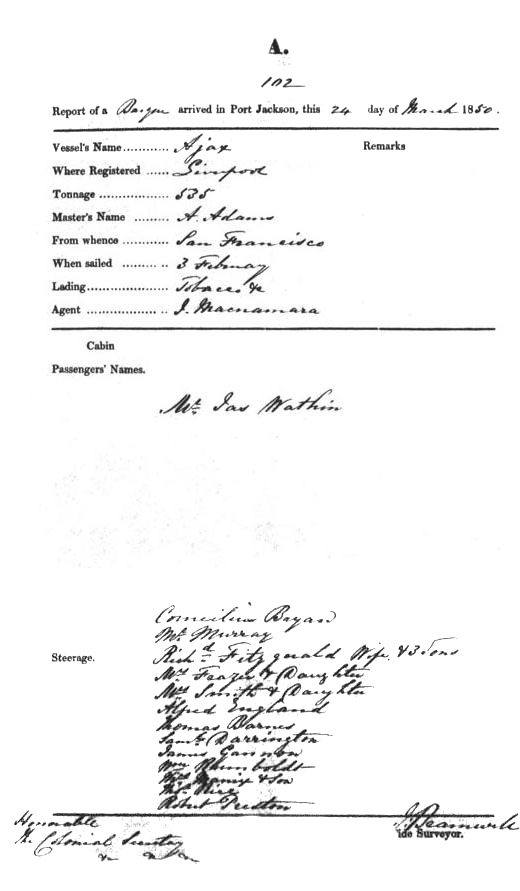 A.
102
Report of a Barque arrived in Port Jackson, this 24 day of March 1850.
Vessel's Name............ Ajax Remarks
Where Registered ...... Liverpool
Tonnage .................. 535
Master's Name ......... A. Adams
From whence ............ San Francisco
When sailed ......... .. 3 February
Lading..................... Tobacco &c
Agent .................. .. J. Macnamara
Cabin
Passengers' Names.
Mr. Jas Wathin
Cornelius Bryan
Mr. Murray
Steerage. Richd. Fitzgerald Wife & 3 Sons
Mrs Frazer & Daughter
Mrs Smith & Daughter
Alfred England
Thomas Barnes
Saml. Darrington
James Gannon
Wm Rhumboldt
Manix & Son
Robert Preston
Honorable
The Colonial Secretary
ide Surveyor.